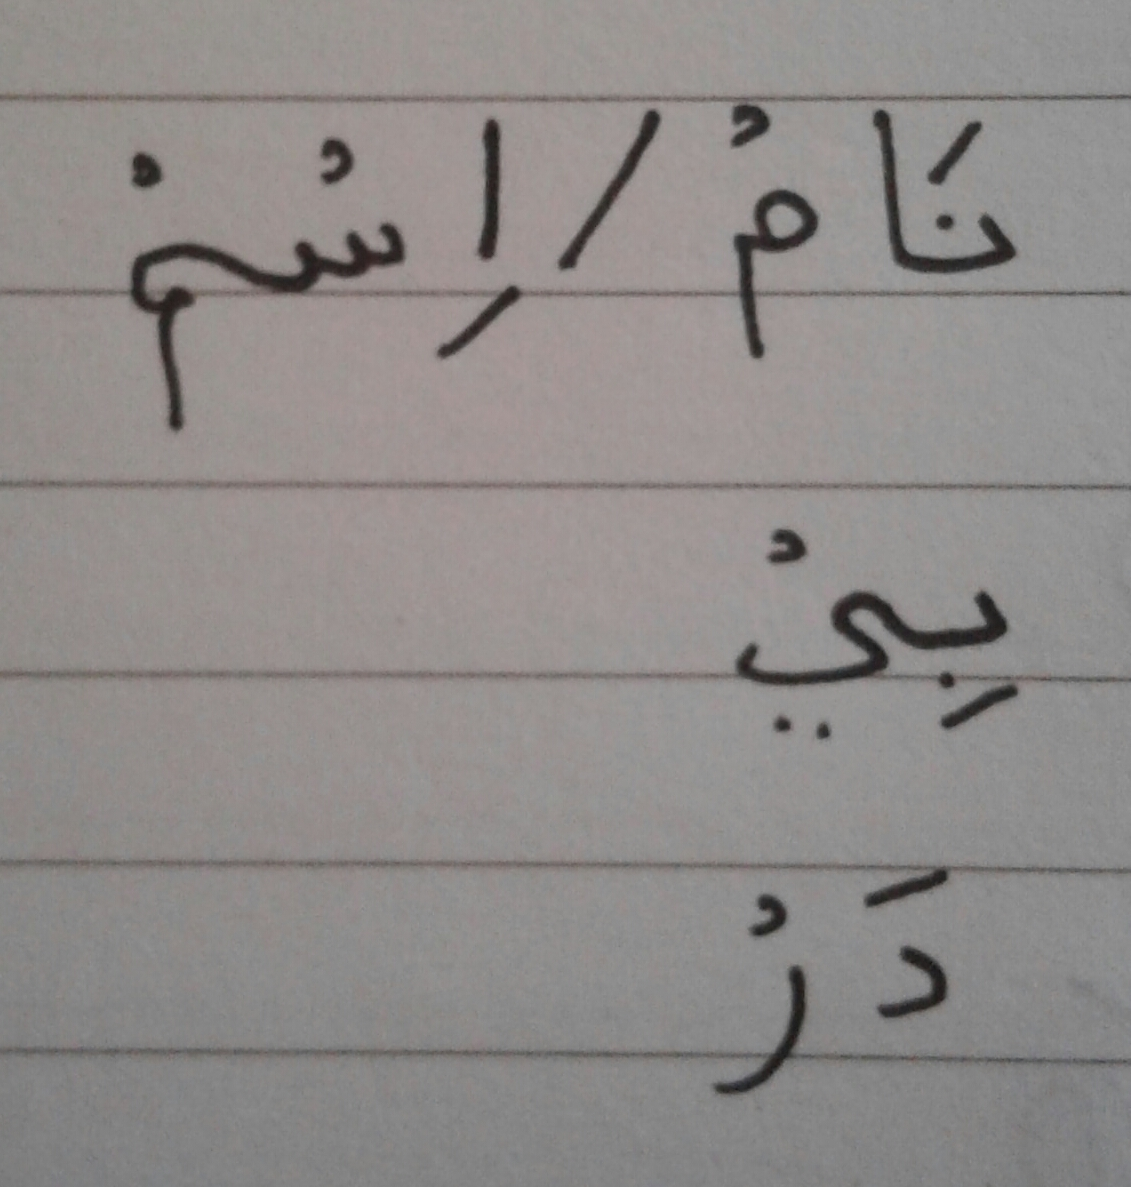 نَامْ / اِسْمْ
بِيْ
دَرْ